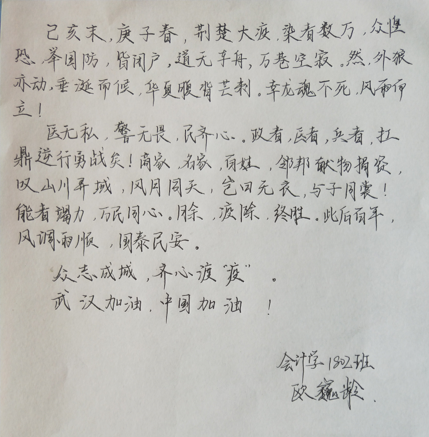 己亥末，庚子春，荆楚大疫，染者数万，众惶
恐，举国防，皆闭户，道无车舟，万巷空寂。然，外狼
亦动，垂涎而候，华夏腹背芒刺。幸龙魂不死，风雨而
立！
医无私，警无畏，民齐心。政者，医者，兵者，扛
鼎逆行勇战矣！商家，名家，百姓，邻邦献物捐资，
叹山川异域，风月同天，岂曰无衣，与子同裳！
能者竭力，万民同心。月余，疫除，终胜。此后百年，
风调雨顺，国泰民安。
众志成城，齐心渡“疫”。
武汉加油，中国加油！
会计学1802班
欧巍龄